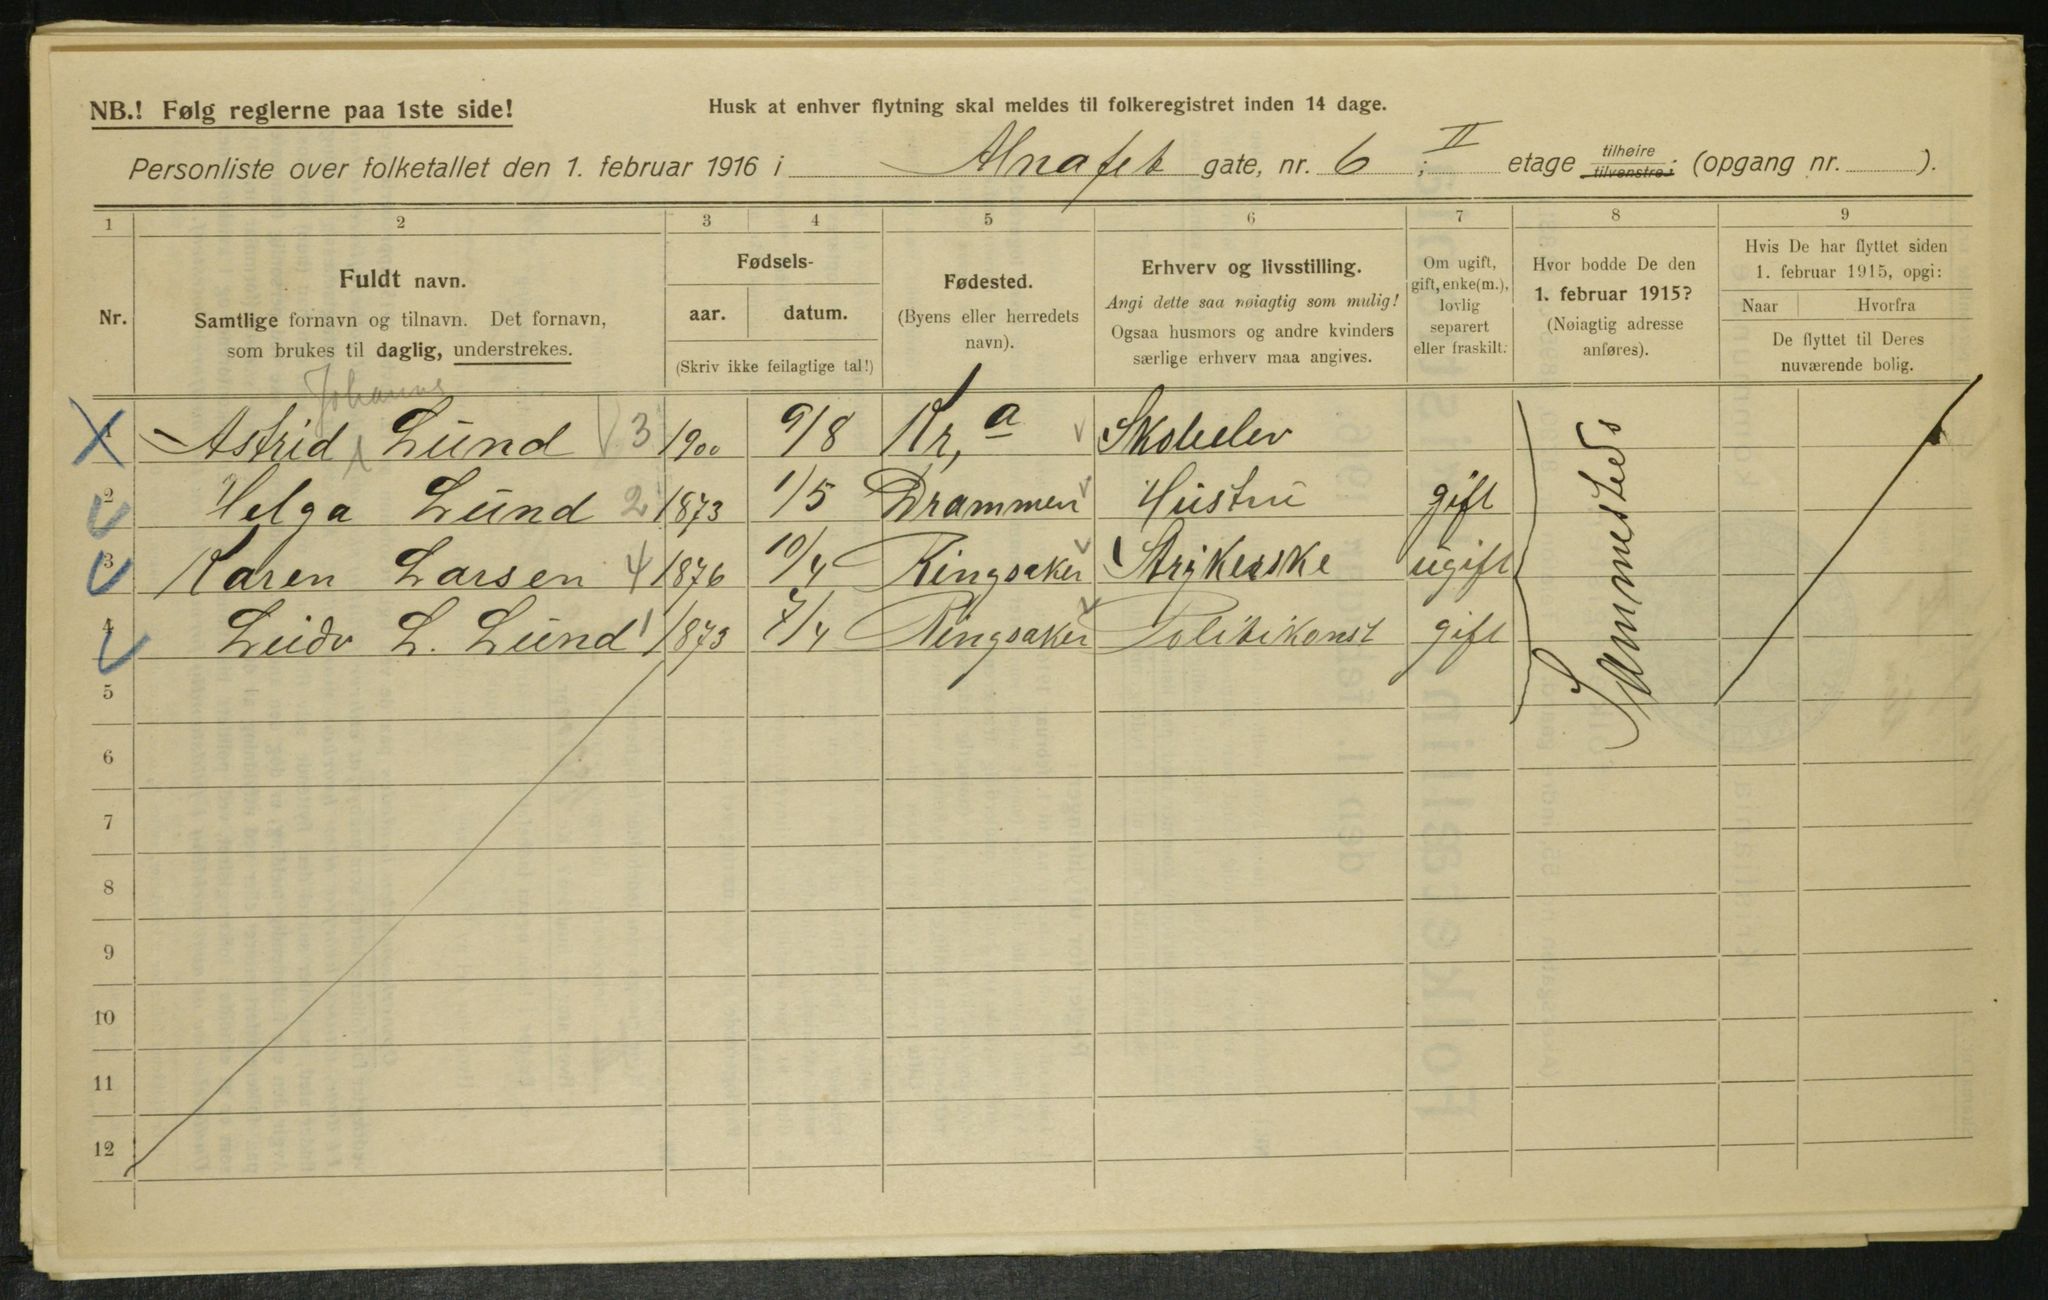 NB.! Følg reglerne paa 1ste side!
Husk at enhver flytning skal meldes til folkeregistret inden 14 dage.
Personliste over folketallet den 1. februar 1916 i Alnafet gate, nr. 6 ; II etage tilhøire / tilvenstre ; (opgang nr. ).
1 2 3 4 5 6 7 8 9
Nr.
Fuldt navn.
Samtlige fornavn og tilnavn. Det fornavn,
som brukes til daglig, understrekes.
Fødsels-
aar. datum.
(Skriv ikke feilagtige tal!)
Fødested.
(Byens eller herredets
navn).
Erhverv og livsstilling.
Angi dette saa nøiagtig som mulig!
Ogsaa husmors og andre kvinders
særlige erhverv maa angives.
Om ugift,
gift, enke(m.),
lovlig
separert
eller fraskilt.
Hvor bodde De den
1. februar 1915?
(Nøiagtig adresse
anføres).
Hvis De har flyttet siden
1. februar 1915, opgi:
Naar Hvorfra
De flyttet til Deres
nuværende bolig.
Johanne
1 Astrid Lund 3 1900 9/8 Kr,a Skoleelev
2 Helga Lund 2 1873 1/5 Drammen Hustru gift
3 Karen Larsen 4 1876 10/4 Ringsaker Strykerske ugift
4 L. Lund 1 1873 7/4 Ringsaker Politikonst gift
Sammesteds
5
6
7
8
9
10
11
12